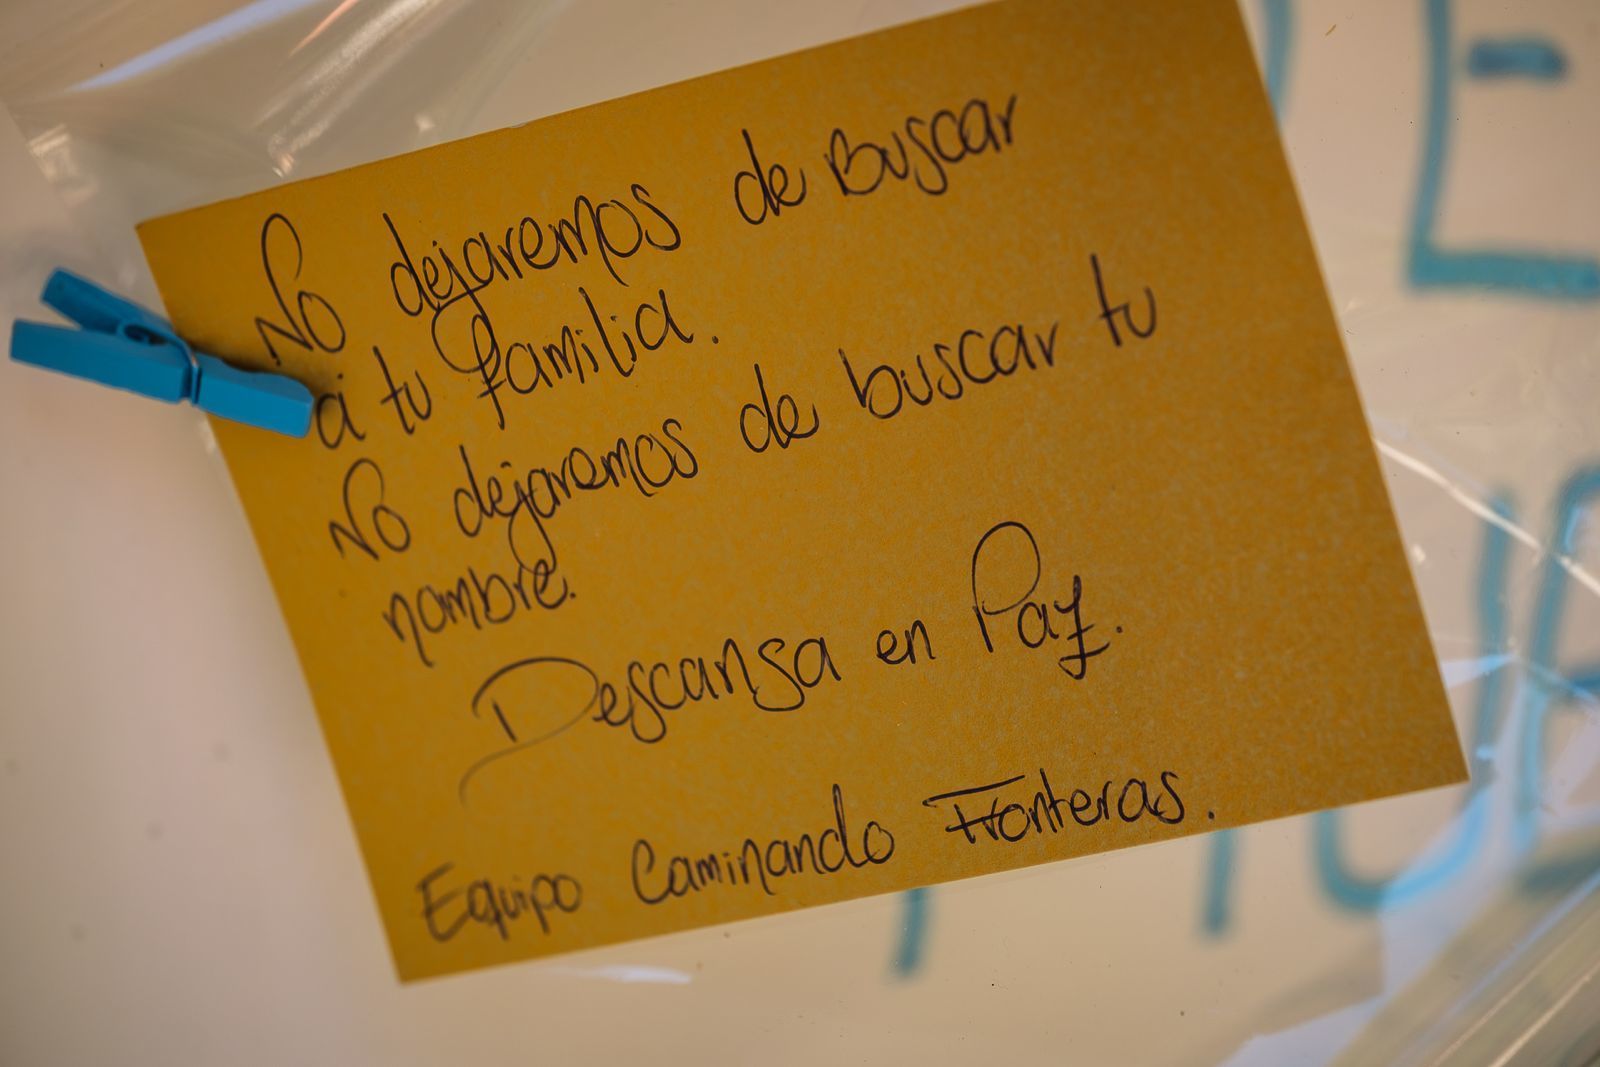 No dejaremos de Buscar
a tu familia.
No dejaremos de buscar tu
nombre.
Descansa en Paz.
Equipo Caminando Fronteras.